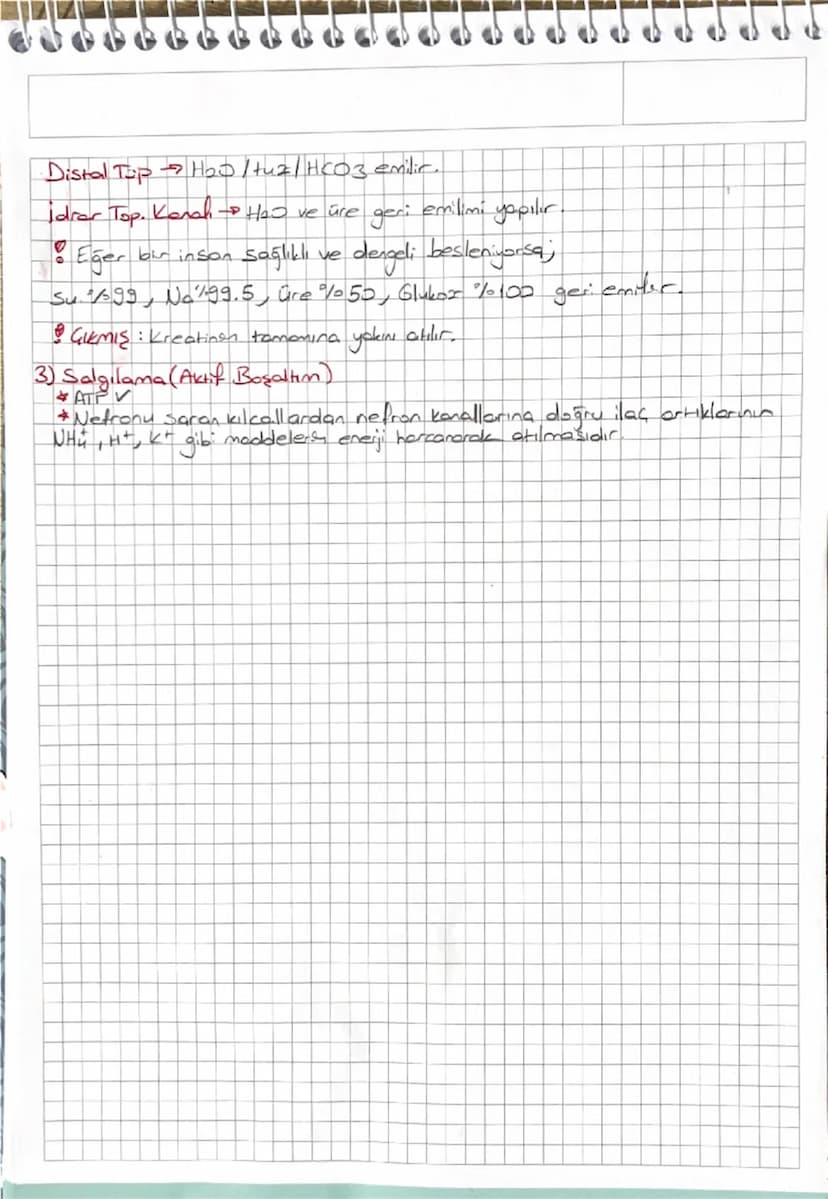 Distal Tüp → H2O/tuz/HCO3 emilir.
İdrar Top. Kanalı → H2O ve üre geri emilimi yapılır.
! Eğer bir insan sağlıklı ve dengeli besleniyorsa;
Su %99, Na %99.5, üre %50, Glukoz %100 geri emilir.
! ÇIKMIŞ: Kreatinen tamamına yakını atılır.
3) Salgılama (Aktif Boşaltım)
* ATP ✓
* Nefronu saran kılcallardan nefron kanallarına doğru ilaç artıklarının
NH4+, H+, K+ gibi maddelerin enerji harcanarak atılmasıdır.